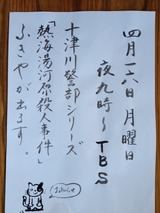 四月一六日月曜日
夜九時〜TBS
十津川警部シリーズ
「熱海湯河原殺人事件」
ふきやが出ます。